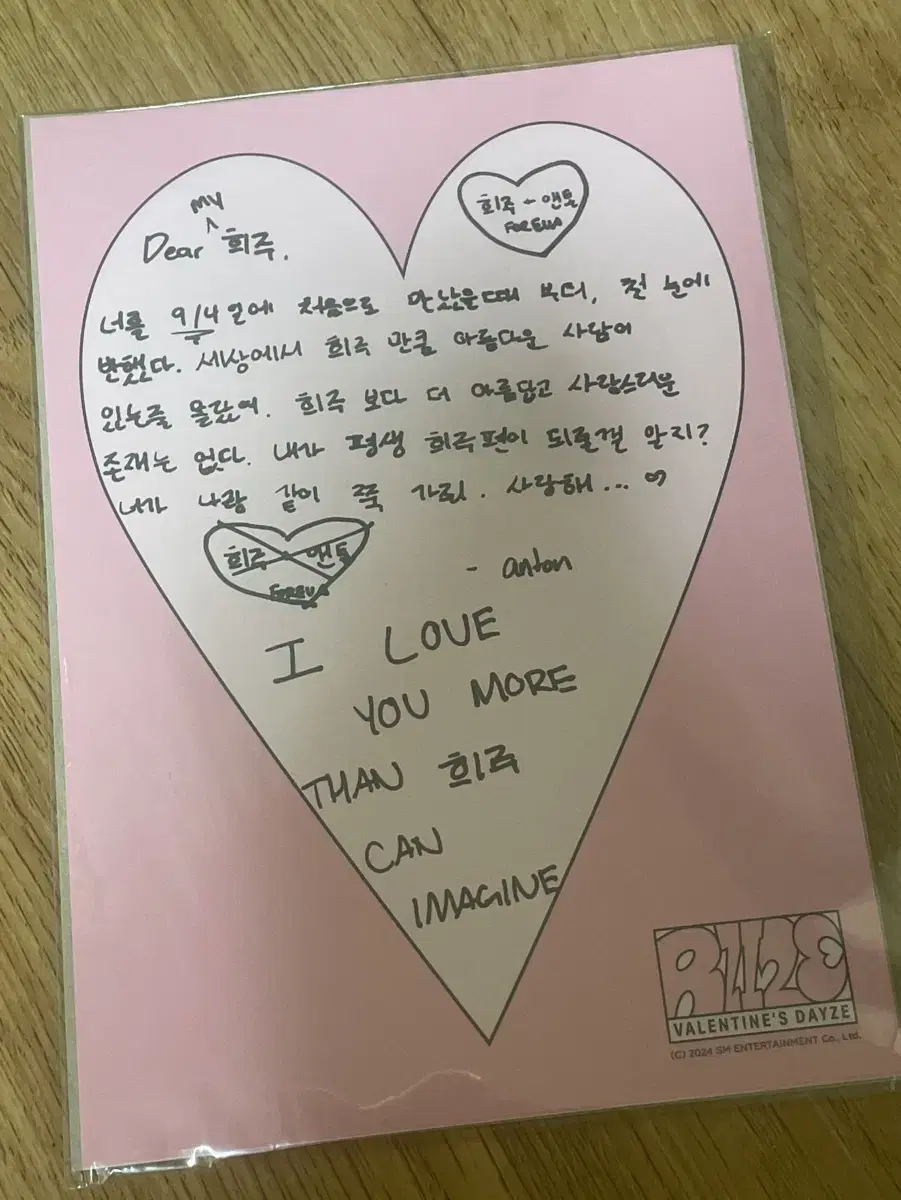 my
Dear 희주.
희주 - 앤톤
FOREVA
너를 9/4일에 처음으로 만났을때 부터, 첫 눈에
반했다. 세상에서 희주 만큼 아름다운 사람이
있는줄 몰랐어. 희주 보다 더 아름답고 사랑스러운
존재는 없다. 내가 평생 희주편이 되줄껄 알지?
너가 나랑 같이 쭉 가줘. 사랑해...
희주 앤톤
FOREVA
- anton
I LOVE
YOU MORE
THAN 희주
CAN
IMAGINE
RIIZE
VALENTINE'S DAYZE
(C) 2024 SM ENTERTAINMENT Co., Ltd.